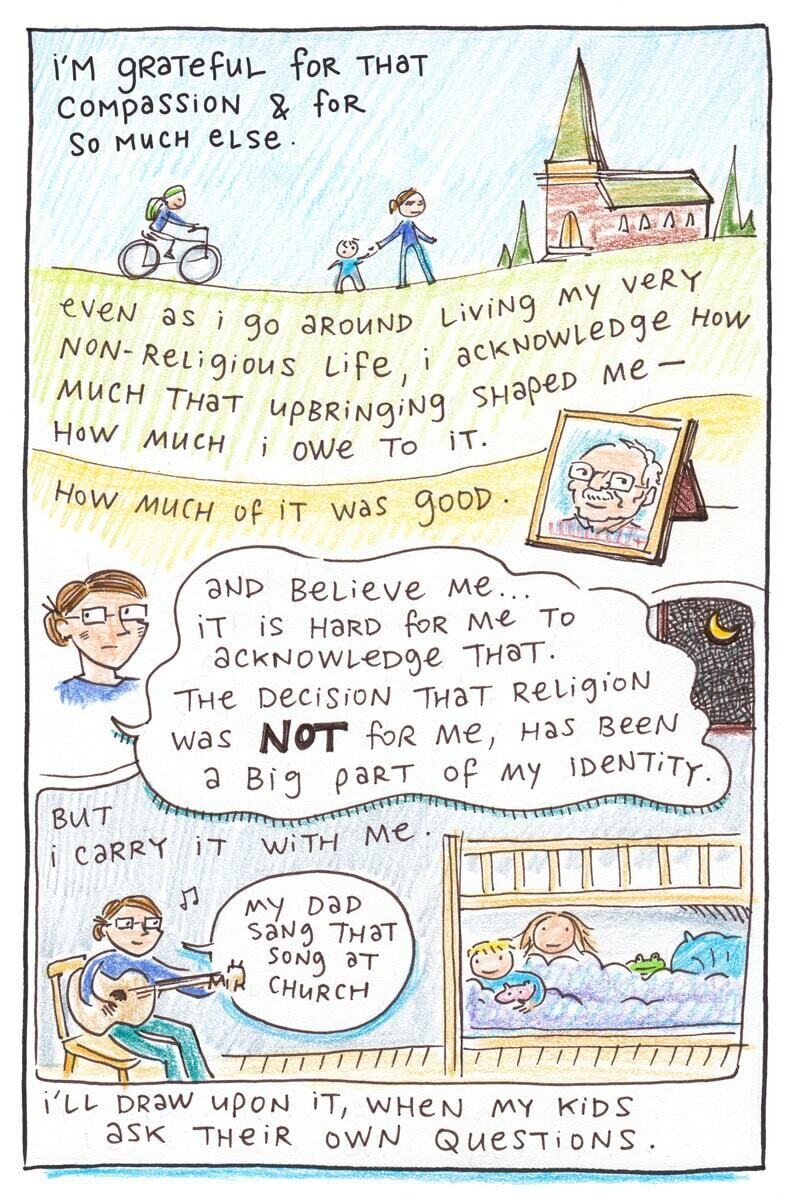 i'm grateful for that
compassion & for
so much else.
even as i go around living my very
non-religious life, i acknowledge how
much that upbringing shaped me—
how much i owe to it.
how much of it was good.
and believe me...
it is hard for me to
acknowledge that.
the decision that religion
was NOT for me, has been
a big part of my identity.
but
i carry it with me.
my dad
sang that
song at
church
i'll draw upon it, when my kids
ask their own questions.